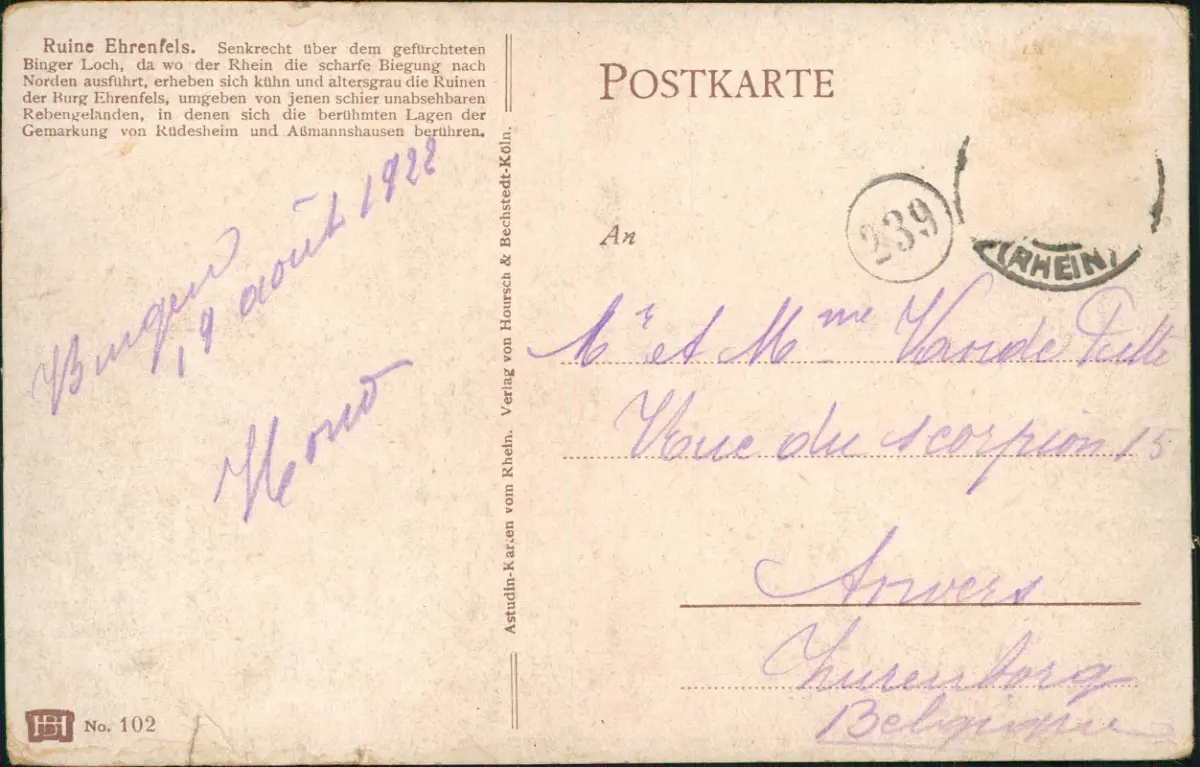 Ruine Ehrenfels. Senkrecht über dem gefürchteten
Binger Loch, da wo der Rhein die scharfe Biegung nach
Norden ausführt, erheben sich kühn und altersgrau die Ruinen
der Burg Ehrenfels, umgeben von jenen schier unabsehbaren
Rebengeländen, in denen sich die berühmten Lagen der
Gemarkung von Rüdesheim und Aßmannshausen berühren.
Bingen
19 août 1922
BH No. 102
Astudin-Karten vom Rhein. Verlag von Hoursch & Bechstedt-Köln.
POSTKARTE
239
(RHEIN)
An
Mr et Mme Vande
Rue du scorpion 15
Anvers
Zurenborg
Belgique